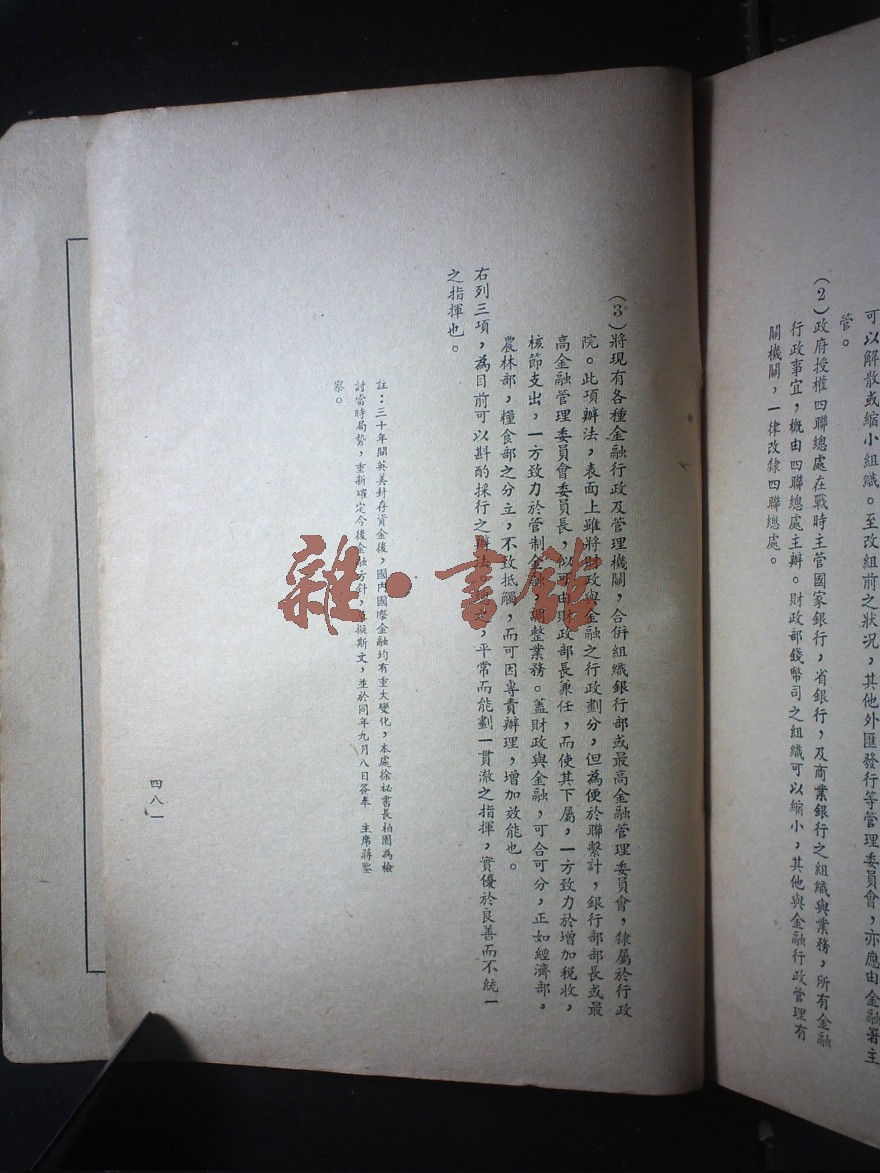 可以解散或縮小組織。至改組前之狀況，其他外匯發行等管理委員會，亦應由金融署主
管。
（2）政府授權四聯總處在戰時主管國家銀行，省銀行，及商業銀行之組織與業務，所有金融
行政事宜，概由四聯總處主辦。財政部錢幣司之組織可以縮小，其他與金融行政管理有
關機關，一律改隸四聯總處。
（3）將現有各種金融行政及管理機關，合併組織銀行部或最高金融管理委員會，隸屬於行政
院。此項辦法，表面上雖將財政與金融之行政劃分，但為便於聯繫計，銀行部部長或最
高金融管理委員會委員長，以可由財政部長兼任，而使其下屬，一方致力於增加稅收，
核節支出，一方致力於管制金融，調整業務。蓋財政與金融，可合可分，正如經濟部，
農林部，糧食部之分立，不致抵觸，而可因專責辦理，增加效能也。
右列三項，為目前可以斟酌採行之辦法。，平常而能劃一貫澈之指揮，實優於良善而不統一
之指揮也。
註：三十年關英美封存資金後，國內國際金融均有重大變化，本處徐祕書長柏園為檢
討當時局勢，重新確定今後金融方針，擬斯文，並於同年九月八日簽奉　主席蔣鑒
察。
四八一
雜·書館